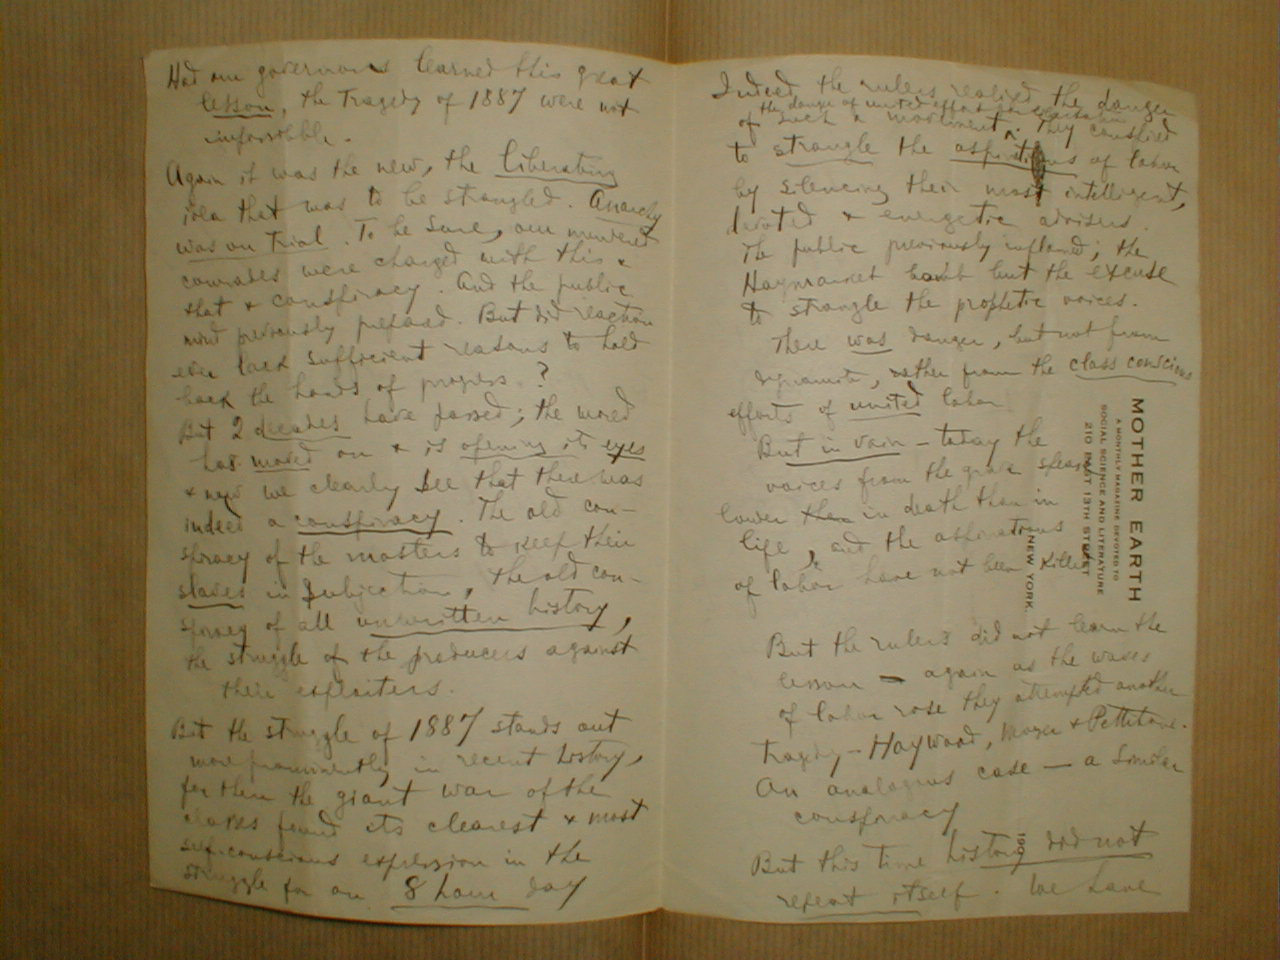 Had our governors learned this great
lesson, the tragedy of 1887 were not
impossible.
Again it was the new, the liberating
idea that was to be strangled. Anarchy
was on trial. To be sure, our murdered
comrades were charged with this &
that & conspiracy. And the public
mind previously prepared. But did reaction
ever lack sufficient reasons to hold
back the hands of progress?
But 2 decades have passed; the world
has moved on & is opening its eyes
& now we clearly see that there was
indeed a conspiracy. The old con-
spiracy of the masters to keep their
slaves in subjection, the old con-
spiracy of all unwritten history,
the struggle of the producers against
their exploiters.
But the struggle of 1887 stands out
more prominently in recent history,
for then the giant war of the
classes found its clearest & most
self-conscious expression in the
struggle for an 8 hour day
Indeed, the rulers realized the danger
the danger of united effort
of such a movement. They conspired
to strangle the aspirations of labor
by silencing their most intelligent,
devoted & energetic advisers.
The public previously inflamed; the
Haymarket bomb but the excuse
to strangle the prophetic voices.
There was danger, but not from
dynamite, rather from the class conscious
efforts of united labor
But in vain – today the
voices from the grave speak
louder than in death than in
life, and the aspirations
of labor have not been killed
But the rulers did not learn the
lesson – again as the waves
of labor rose they attempted another
tragedy – Haywood, Moyer & Pettibone.
An analogous case – a similar
conspiracy
But this time history did not
repeat itself. We have
MOTHER EARTH
A MONTHLY MAGAZINE DEVOTED TO
SOCIAL SCIENCE AND LITERATURE
210 EAST 13TH STREET
NEW YORK,
190